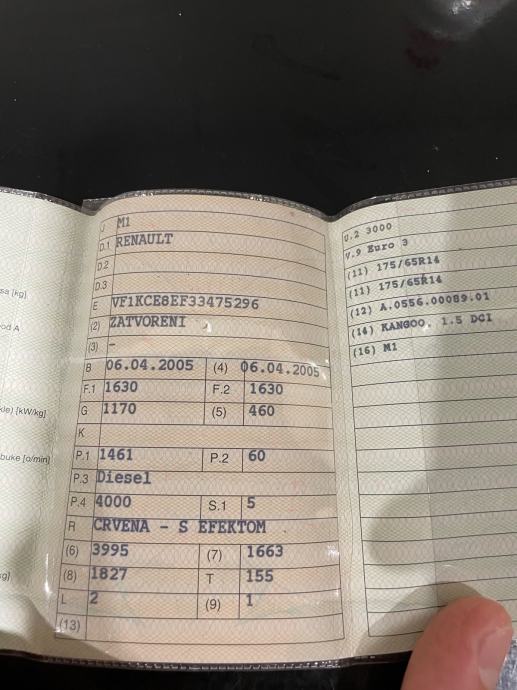 sa [kg]
od A
kle) [kW/kg]
buke [o/min]
g]
J M1
D.1 RENAULT
D.2
D.3
E VF1KCE8EF33475296
(2) ZATVORENI
(3) –
B 06.04.2005 (4) 06.04.2005
F.1 1630 F.2 1630
G 1170 (5) 460
K
P.1 1461 P.2 60
P.3 Diesel
P.4 4000 S.1 5
R CRVENA - S EFEKTOM
(6) 3995 (7) 1663
(8) 1827 T 155
L 2 (9) 1
(13)
U.2 3000
V.9 Euro 3
(11) 175/65R14
(11) 175/65R14
(12) A.0556.00089.01
(14) KANGOO, 1.5 DCI
(16) M1